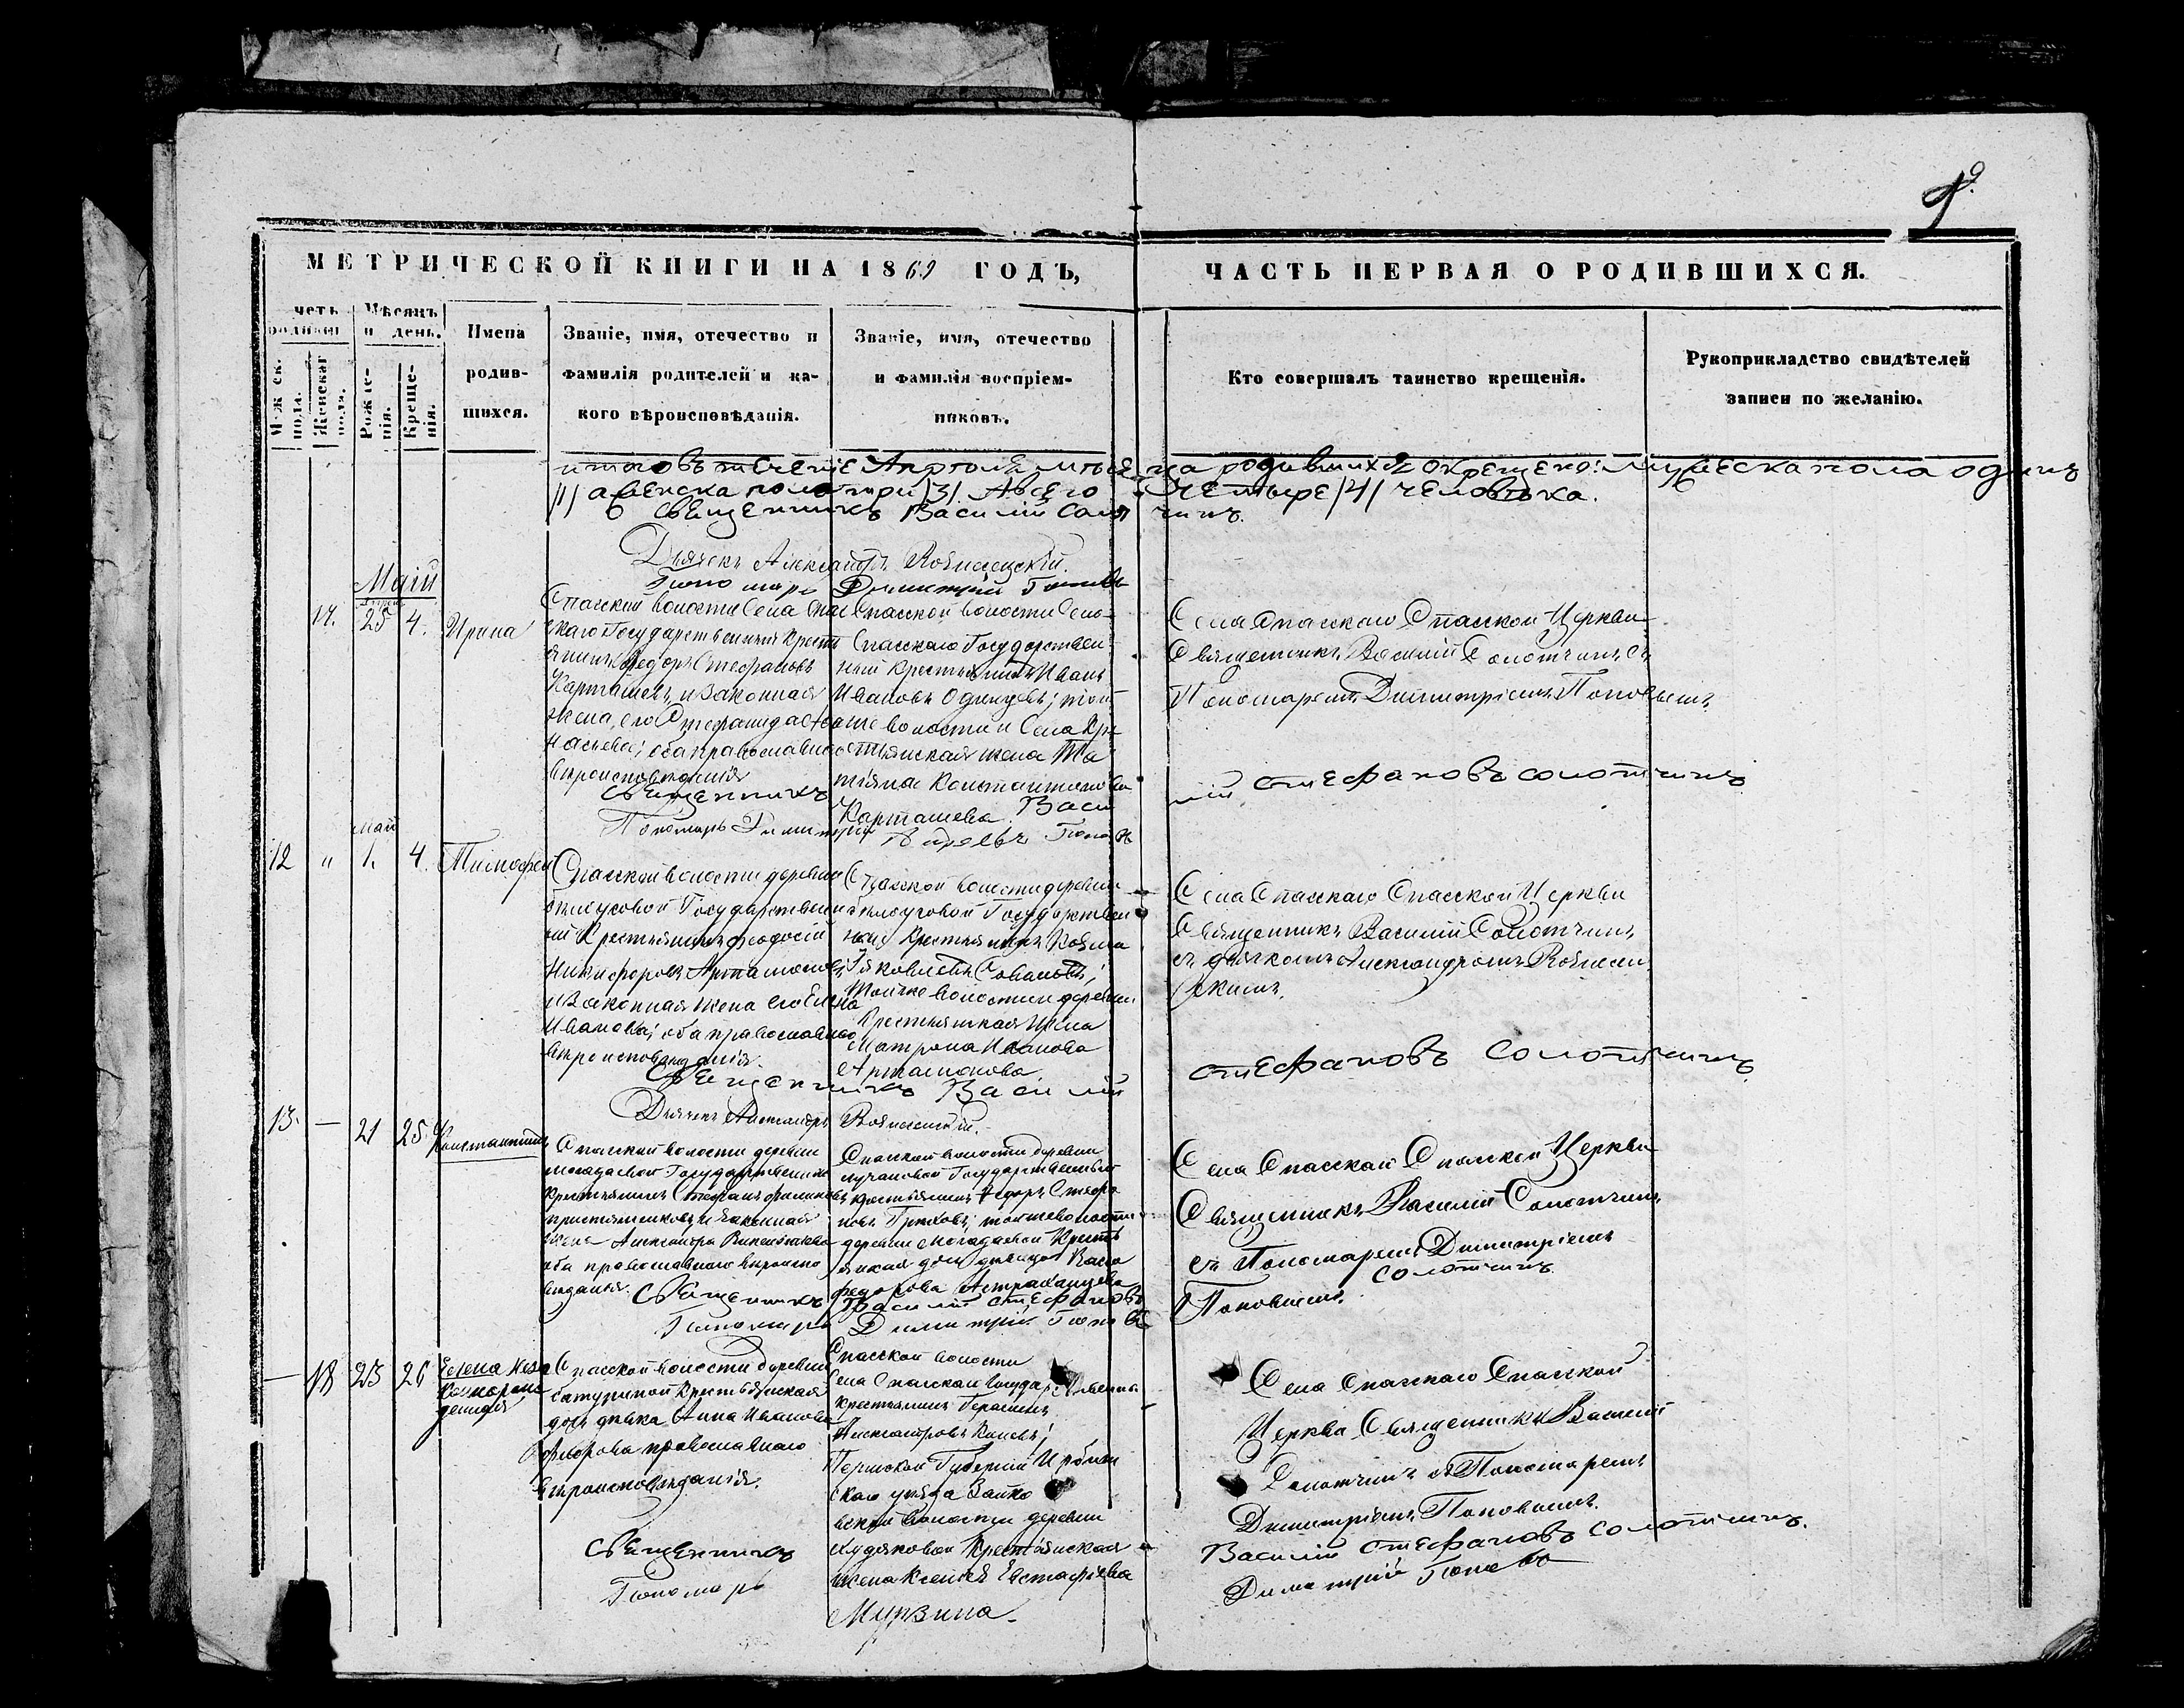 9.
МЕТРИЧЕСКОЙ КНИГИ НА 1869 ГОДЪ, ЧАСТЬ ПЕРВАЯ О РОДИВШИХСЯ.
Мѣсяцъ и день.
Женскаго пола.
Рожденія.
Крещенія.
Имена родившихся.
Званіе, имя, отечество и фамилія родителей и какого вѣроисповѣданія.
Званіе, имя, отечество и фамилія воспріемниковъ.
Кто совершалъ таинство крещенія.
Рукоприкладство свидѣтелей записи по желанію.
итого въ теченіе Апрѣля мѣсяца родившихся окрещено: мужеска пола одинъ
/1/ а женска пола три /3/. А всего четыре /4/ человѣка.
Священникъ Василій Солотчинъ.
Дьячекъ Александръ
Пономарь Димитрій Поповъ
Маій
17. 25 4. Ирина
Спасской волости Села Спас
скаго Государственный Крестья
янинъ Федоръ Стефановъ
Карташевъ, и законная
жена его Стефанида
оба православнаго
вѣроисповѣданія
Спасской волости Села
Спасскаго Государствен
ный Крестьянинъ Иванъ
Ивановъ Одинцевъ; той
же волости и Села Кре
стьянская жена Та
тіяна Константинова
Карташева.
Села Спасскаго Спасской Церкви
Священникъ Василій Солотчинъ съ
Пономаремъ Димитріемъ Поповымъ.
Священникъ Василій Стефановъ Солотчинъ
Пономарь Димитрій Поповъ
май
12 " 1. 4. Тимофей
Спасской волости деревни
Государствен
ный Крестьянинъ Феодосій
Никифоровъ Артамоновъ
и Законная жена его Елена
Иванова; оба православнаго
вѣроисповѣданія.
Спасской волости деревни
Государствен
ный Крестьянинъ Козма
Яковлевъ
той же волости и деревни
Крестьянская жена
Матрона Иванова
Артамонова
Села Спасскаго Спасской Церкви
Священникъ Василій Солотчинъ
съ дьячкомъ Александромъ
Священникъ Василій Стефановъ Солотчинъ
Дьячекъ Александръ
13. — 21 25 Константинъ
Спасской волости деревни
Государственный
Крестьянинъ Стефанъ
и законная
жена Александра
оба православнаго вѣроиспо
вѣданія.
Спасской волости деревни
Государственный
крестьянинъ Федоръ Стефа
новъ той же волости
деревни Крестья
янская дочь дѣвица
Федорова Астраханцева
Села Спасскаго Спасской Церкви
Священникъ Василій Солотчинъ
съ Пономаремъ Димитріемъ
Поповымъ.
Священникъ Василій Стефановъ Солотчинъ
Пономарь Димитрій Поповъ
— 18 23 26 Елена
Спасской волости деревни
Крестьянская
дочь дѣвка Анна Иванова
православнаго
вѣроисповѣданія.
Спасской волости
Села Спасскаго Государственный
крестьянинъ Герасимъ
Александровъ
Пермской Губерніи Ирбит
скаго уѣзда Зайко
вской волости деревни
Худяковой Крестьянская
жена Ксенія Евстафіева
Мурзина.
Села Спасскаго Спасской
Церкви Священникъ Василій
Солотчинъ съ Пономаремъ
Димитріемъ Поповымъ.
Священникъ Василій Стефановъ Солотчинъ.
Пономарь Димитрій Поповъ